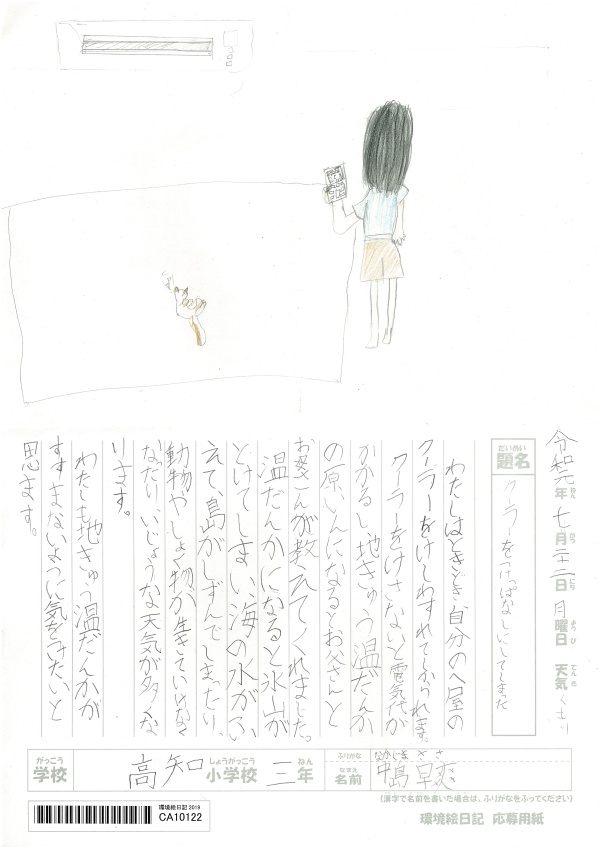 令和元年 七月二十二日 月曜日 天気 くもり
ねん がつ にち ようび てんき
だいめい
題名
クーラーをつけっぱなしにしてしまった
わたしはときどき自分のへ屋の
クーラーをけしわすれてしかられます。
クーラーをけさないと電気代が
かかるし地きゅう温だんか
の原いんになるとお父さんと
お母さんが教えてくれました。
温だんかになると氷山が
とけてしまい、海の水がふ
えて、島がしずんでしまったり、
動物やしょく物が生きていけなく
なったり、いじょうな天気が多くな
ります。
わたしも地きゅう温だんかが
すすまないように気をつけたいと
思います。
がっこう しょうがっこう ねん
学校 高知 小学校 三年
ふりがな なかじま ささ
なまえ
名前 中島 早爽
(漢字で名前を書いた場合は、ふりがなをふってください)
環境絵日記 2019
CA10122
環境絵日記 応募用紙